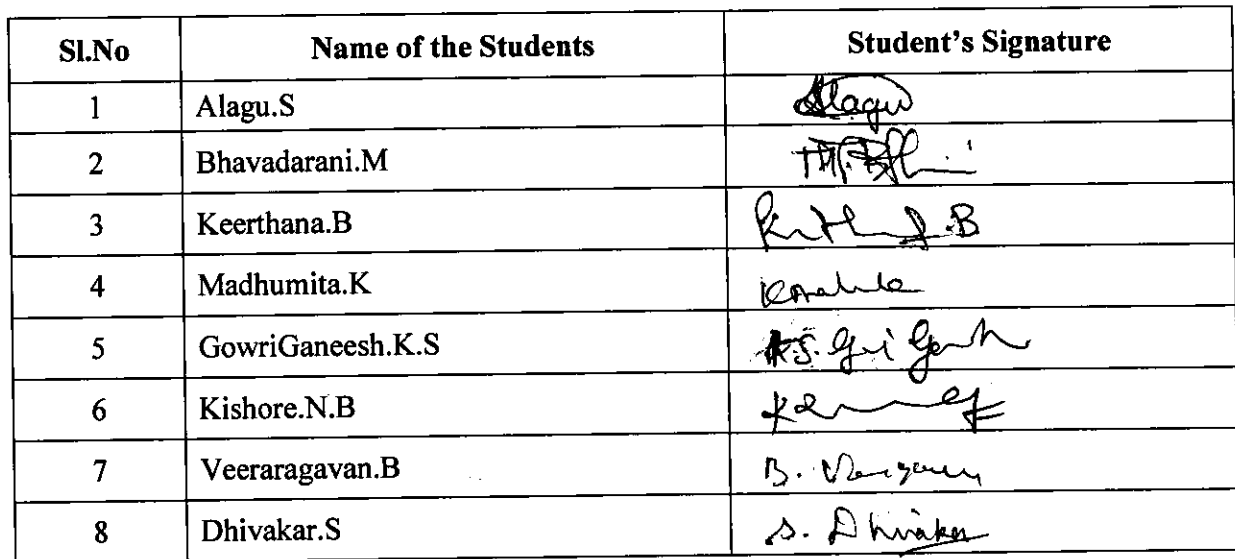 Sl.No Name of the Students Student's Signature
1 Alagu.S Alagu
2 Bhavadarani.M
3 Keerthana.B
4 Madhumita.K
5 GowriGaneesh.K.S K.S.
6 Kishore.N.B
7 Veeraragavan.B B.
8 Dhivakar.S S. Dhivakar